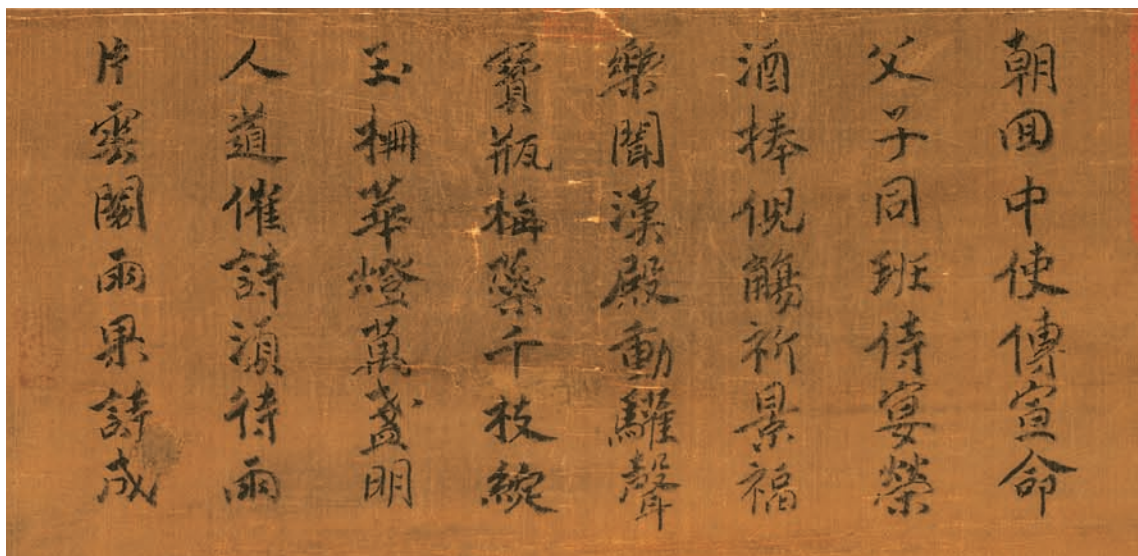 朝回中使傳宣命
父子同班侍宴榮
酒捧倪觴祈景福
樂聞漢殿動驩聲
寶瓶梅蘂千枝綻
玉柵華燈萬盞明
人道催詩湏待雨
片雲閣雨果詩成